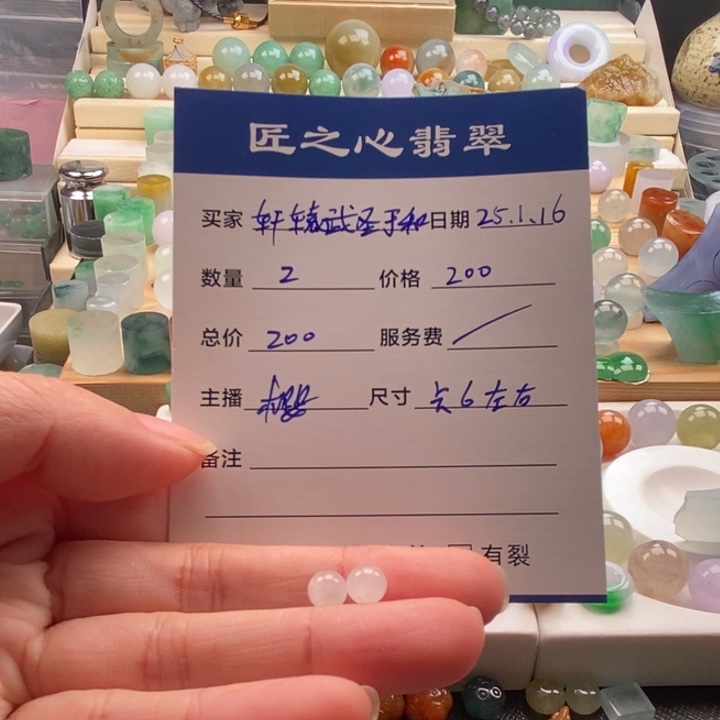 匠之心翡翠
买家 轩辕武圣于和 日期 25.1.16
数量 2 价格 200
总价 200 服务费 /
主播 樱 尺寸 6左右
备注
有裂